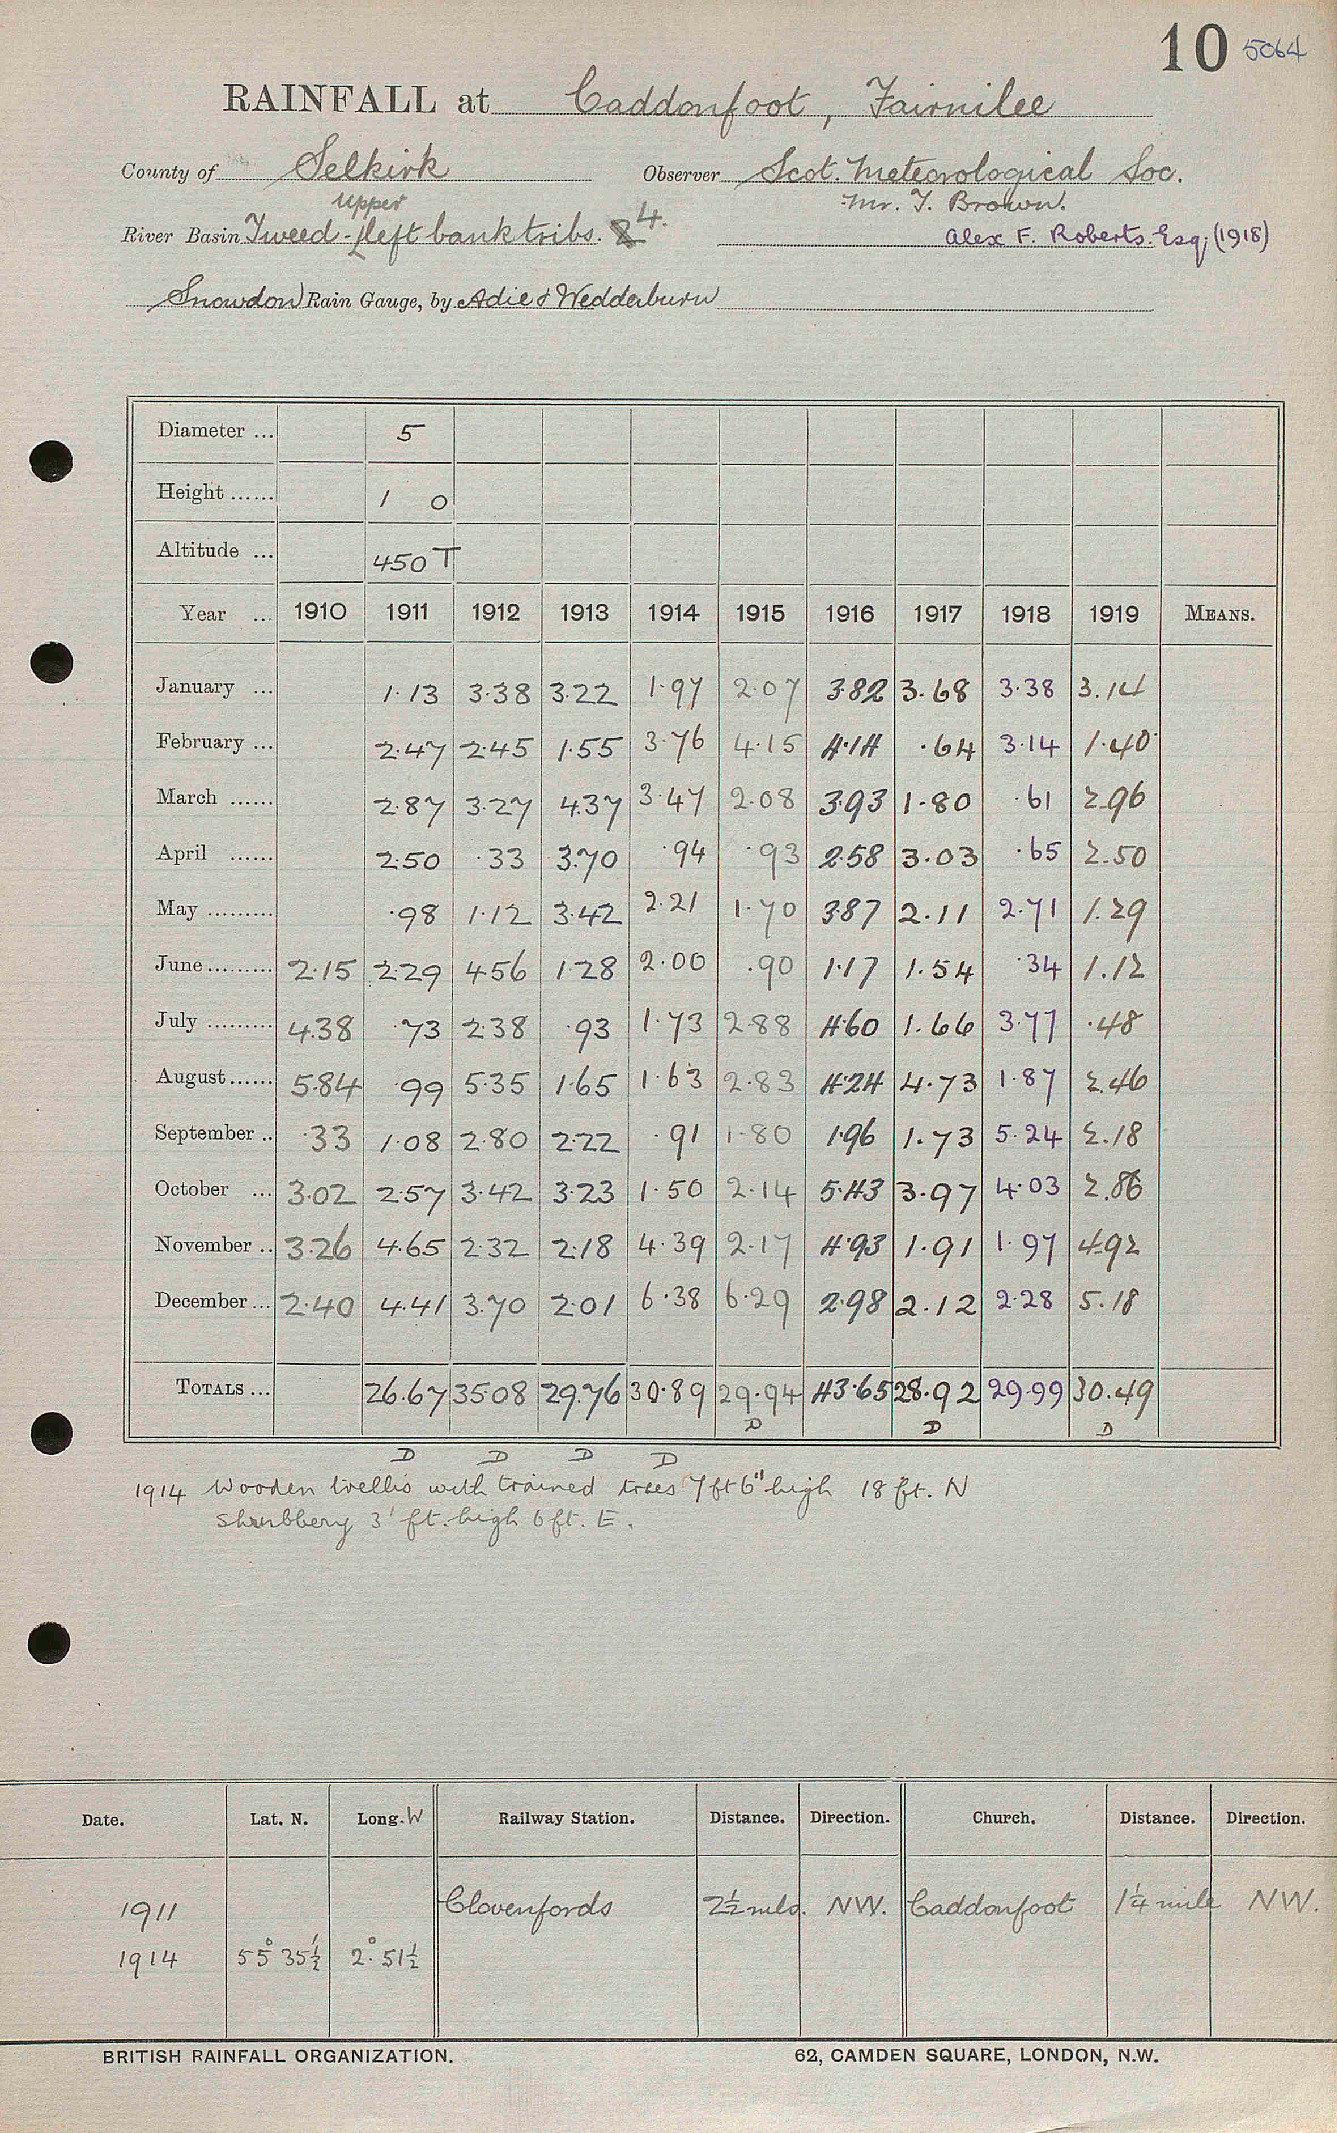 10 5064
RAINFALL at Caddonfoot, Fairnilee
County of Selkirk Observer Scot. Meteorological Soc.
Upper Mr. T. Brown.
River Basin Tweed - left bank tribs. 4. Alex F. Roberts. Esq. (1918)
Snowdon Rain Gauge, by Adie & Wedderburn
Diameter ... 5
Height ...... 1 0
Altitude ... 450 T
Year ... 1910 1911 1912 1913 1914 1915 1916 1917 1918 1919 MEANS.
January ... 1.13 3.38 3.22 1.97 2.07 3.82 3.68 3.38 3.14
February ... 2.47 2.45 1.55 3.76 4.15 4.14 .64 3.14 1.40
March ...... 2.87 3.27 4.37 3.47 2.08 3.93 1.80 .61 2.96
April ...... 2.50 .33 3.70 .94 .93 2.58 3.03 .65 2.50
May ......... .98 1.12 3.42 2.21 1.70 3.87 2.11 2.71 1.29
June ......... 2.15 2.29 4.56 1.28 2.00 .90 1.17 1.54 .34 1.12
July ......... 4.38 .73 2.38 .93 1.73 2.88 4.60 1.66 3.77 .48
August ...... 5.84 .99 5.35 1.65 1.63 2.83 4.24 4.73 1.87 2.46
September .. .33 1.08 2.80 2.22 .91 1.80 1.96 1.73 5.24 2.18
October ... 3.02 2.57 3.42 3.23 1.50 2.14 5.43 3.97 4.03 2.86
November .. 3.26 4.65 2.32 2.18 4.39 2.17 4.93 1.91 1.97 4.92
December ... 2.40 4.41 3.70 2.01 6.38 6.29 2.98 2.12 2.28 5.18
TOTALS ... 26.67 35.08 29.76 30.89 29.94 43.65 28.92 29.99 30.49
D D D
D D D D
1914 Wooden trellis with trained trees 7 ft 6" high 18 ft. N
Shrubbery 3' ft. high 6 ft. E.
Date. Lat. N. Long. W Railway Station. Distance. Direction. Church. Distance. Direction.
1911 Clovenfords 2½ mls. NW. Caddonfoot 1¼ mile NW.
1914 55° 35½' 2° 51½
BRITISH RAINFALL ORGANIZATION. 62, CAMDEN SQUARE, LONDON, N.W.